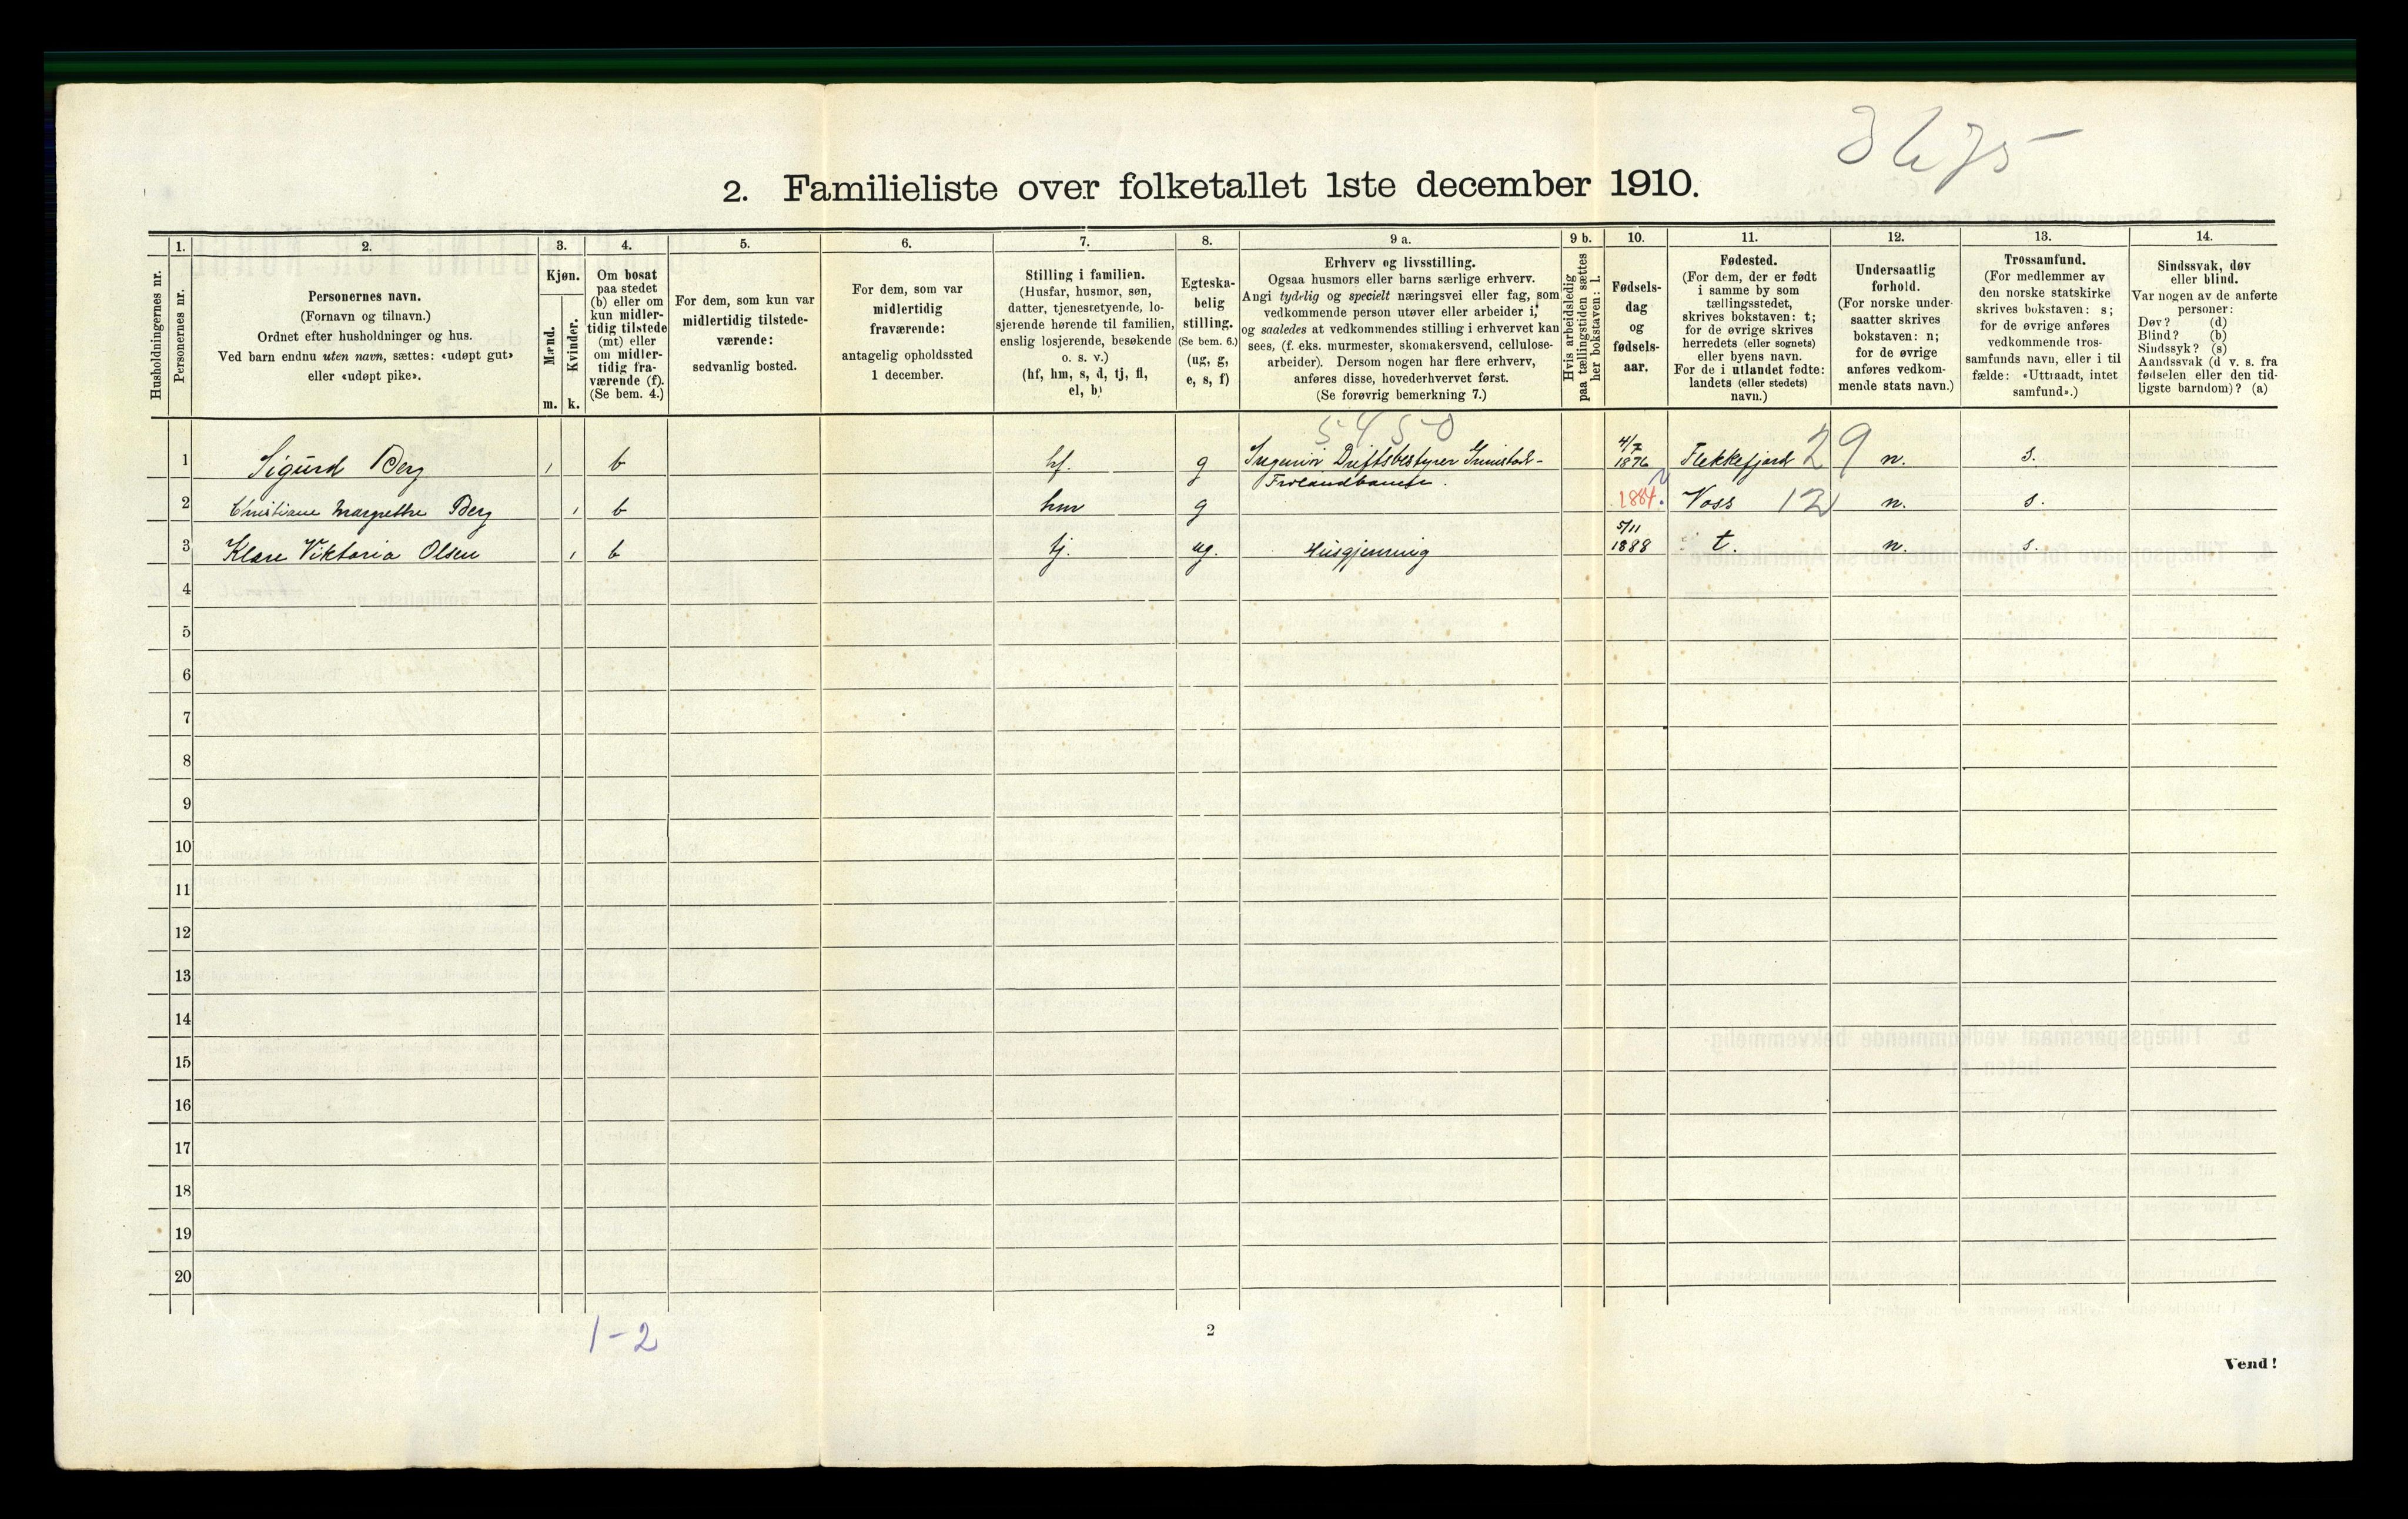 3
2. Familieliste over folketallet 1ste december 1910.
Husholdningernes nr.
1.
Personernes nr.
2.
Personernes navn.
(Fornavn og tilnavn.)
Ordnet efter husholdninger og hus.
Ved barn endnu uten navn, sættes: «udøpt gut»
eller «udøpt pike».
3.
Kjøn.
Mænd.
Kvinder.
m. k.
4.
Om bosat
paa stedet
(b) eller om
kun midler-
tidig tilstede
(mt) eller
om midler-
tidig fra-
værende (f).
(Se bem. 4.)
5.
For dem, som kun var
midlertidig tilstede-
værende:
sedvanlig bosted.
6.
For dem, som var
midlertidig
fraværende:
antagelig opholdssted
1 december.
7.
Stilling i familien.
(Husfar, husmor, søn,
datter, tjenestetyende, lo-
sjerende hørende til familien,
enslig losjerende, besøkende
o. s. v.)
(hf, hm, s, d, tj, fl,
el, b)
8.
Egteska-
belig
stilling.
(Se bem. 6.)
(ug, g,
e, s, f)
9 a.
Erhverv og livsstilling.
Ogsaa husmors eller barns særlige erhverv.
Angi tydelig og specielt næringsvei eller fag, som
vedkommende person utøver eller arbeider i,
og saaledes at vedkommendes stilling i erhvervet kan
sees, (f. eks. murmester, skomakersvend, cellulose-
arbeider). Dersom nogen har flere erhverv,
anføres disse, hovederhvervet først.
(Se forøvrig bemerkning 7.)
9 b.
Hvis arbeidsledig
paa tællingstiden sættes
her bokstaven: l.
10.
Fødsels-
dag
og
fødsels-
aar.
11.
Fødested.
(For dem, der er født
i samme by som
tællingsstedet,
skrives bokstaven: t;
for de øvrige skrives
herredets (eller sognets)
eller byens navn.
For de i utlandet fødte:
landets (eller stedets)
navn.)
12.
Undersaatlig
forhold.
(For norske under-
saatter skrives
bokstaven: n;
for de øvrige
anføres vedkom-
mende stats navn.)
13.
Trossamfund.
(For medlemmer av
den norske statskirke
skrives bokstaven: s;
for de øvrige anføres
vedkommende tros-
samfunds navn, eller i til
fælde: «Uttraadt, intet
samfund».)
14.
Sindssvak, døv
eller blind.
Var nogen av de anførte
personer:
Døv? (d)
Blind? (b)
Sindssyk? (s)
Aandssvak (d v. s. fra
fødselen eller den tid-
ligste barndom)? (a)
5450
1 Sigurd Berg 1 b hf. g Ingeniör Driftsbestyrer Grimstad- 4/7 1876 Flekkefjord 29 n. s.
Frolandbanen.
2 Christiane Margrethe Berg 1 b hm g 1884. Voss 12 n. s.
3 Klara Viktoria Olsen 1 b tj. ug. Husgjerning 5/11 1888 t. n. s.
4
5
6
7
8
9
10
11
12
13
14
15
16
17
18
19
20
1-2
2
Vend!